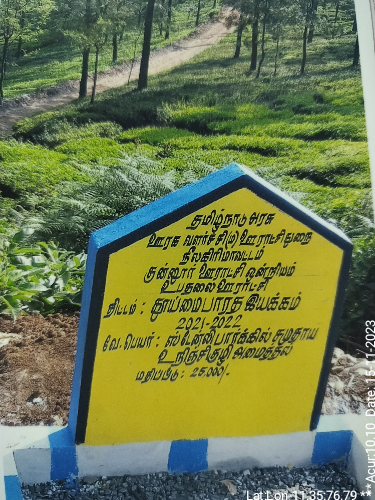 தமிழ்நாடு அரசு
ஊரக வளர்ச்சி(ம) ஊராட்சிதுறை
நீலகிரிமாவட்டம்
குன்னூர் ஊராட்சி ஒன்றியம்
உபதலை ஊராட்சி
திட்டம் : தூய்மைபாரத இயக்கம்
2021-2022
வே.பெயர் : ஸ்டேன்லிபார்க்கில் சமுதாய
உறிஞ்சிகுழி அமைத்தல்
மதிப்பீடு : 25,000/-
Lat Lon-11.35:76.79
**Acur:10.10 Date:15-11-2023